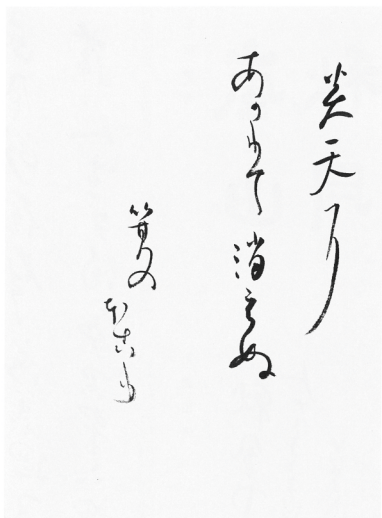 炎天に
あかりて消えぬ
箕の
ほこり